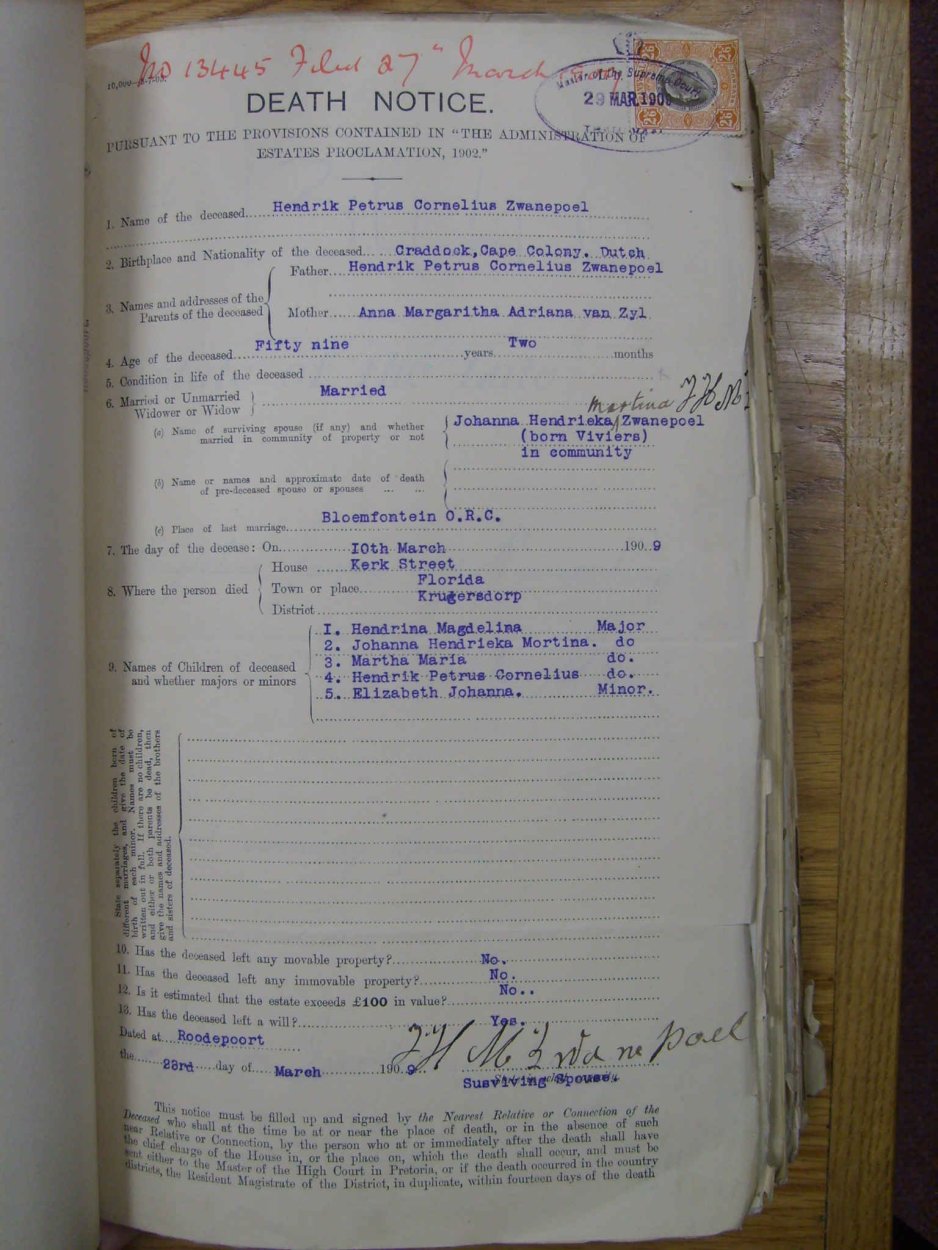 No 13445 Filed 27" March
DEATH NOTICE.
Master of the Supreme Court
29 MAR.1909
2/6 2/6
2/6 2/6
PURSUANT TO THE PROVISIONS CONTAINED IN "THE ADMINISTRATION OF
ESTATES PROCLAMATION, 1902."
1. Name of the deceased Hendrik Petrus Cornelius Zwanepoel
2. Birthplace and Nationality of the deceased Craddock,Cape Colony. Dutch
3. Names and addresses of the Parents of the deceased
Father Hendrik Petrus Cornelius Zwanepoel
Mother Anna Margaritha Adriana van Zyl
4. Age of the deceased Fifty nine years Two months
5. Condition in life of the deceased
6. Married or Unmarried Widower or Widow Married
Martina J H M Z
(a) Name of surviving spouse (if any) and whether married in community of property or not
Johanna Hendrieka/Zwanepoel
(born Viviers)
in community
(b) Name or names and approximate date of death of pre-deceased spouse or spouses ... ...
(c) Place of last marriage Bloemfontein O.R.C.
7. The day of the decease: On 10th March 1909
8. Where the person died
House Kerk Street
Town or place Florida
Krugersdorp
District
9. Names of Children of deceased and whether majors or minors
I. Hendrina Magdelina Major
2. Johanna Hendrieka Mortina. do
3. Martha Maria do.
4. Hendrik Petrus Cornelius do.
5. Elizabeth Johanna. Minor.
State separately the children born of
different marriages, and give the date of
birth of each minor. Names must be
written out in full. If there are no children,
and either or both parents be dead, then
give the names and addresses of the brothers
and sisters of deceased.
10. Has the deceased left any movable property? No.
11. Has the deceased left any immovable property? No.
12. Is it estimated that the estate exceeds £100 in value? No..
13. Has the deceased left a will? Yes.
Dated at Roodepoort
J H M Zwanepoel
the 23rd day of March 1909
Susviving Spouse.
This notice must be filled up and signed by the Nearest Relative or Connection of the
Deceased who shall at the time be at or near the place of death, or in the absence of such
near Relative or Connection, by the person who at or immediately after the death shall have
the chief charge of the House in, or the place on, which the death shall occur, and must be
sent either to the Master of the High Court in Pretoria, or if the death occurred in the country
districts, the Resident Magistrate of the District, in duplicate, within fourteen days of the death